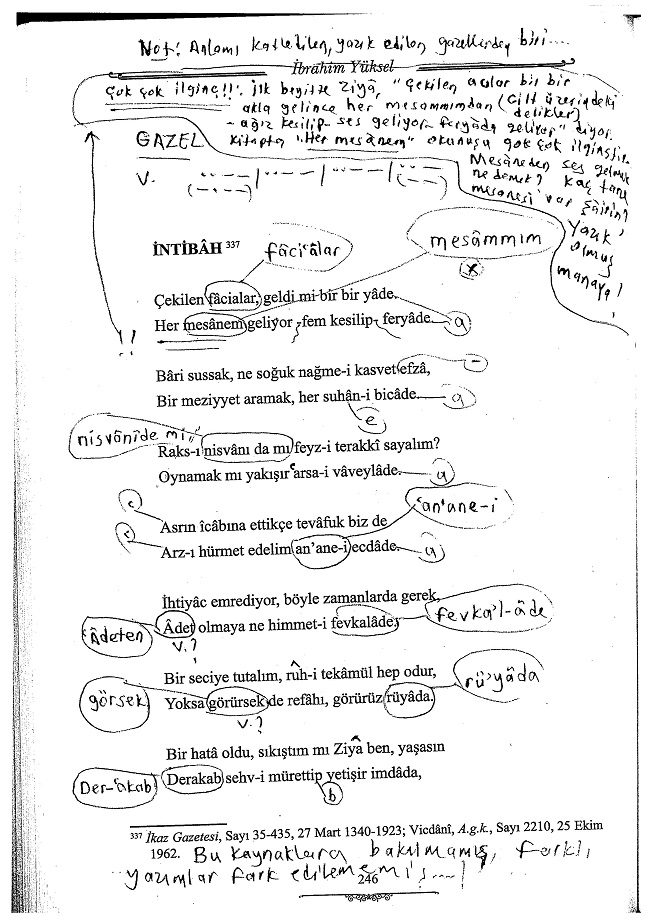 Not: Anlamı katledilen, yazık edilen gazellerden biri....
İbrahim Yüksel
Çok çok ilginç!!. İlk beyitte Ziyâ, "Çekilen acılar bir bir
akla gelince her mesammımdan (cilt üzerindeki
delikler)
- ağız kesilip - ses geliyor - feryâda geliyor" diyor.
GAZEL kitapta "Her mesânem" okunuşu çok çok ilginçtir.
Mesâneden ses gelmek
ne demek? Kaç tane
mesanesi var şâirin?
Yazık
olmuş
manaya!
V. ..--/..--/..--/..-
(-.--) (--)
mesâmmım
x
İNTİBÂH 337 fâci'âlar
Çekilen fâcialar, geldi mi bir bir yâde.
Her mesânem geliyor -fem kesilip- feryâde. a
!!
Bâri sussak, ne soğuk nağme-i kasvet efzâ, -
Bir meziyyet aramak, her suhân-i bicâde. a
e
nisvânîde mi"
Raks-ı nisvânı da mı feyz-i terakkî sayalım?
Oynamak mı yakışır arsa-i vâveylâde. a
'an'ane-i
Asrın îcâbına ettikçe tevâfuk biz de
Arz-ı hürmet edelim an'ane-i ecdâde. a
İhtiyâc emrediyor, böyle zamanlarda gerek,
fevka'l-âde
Âdeten Âdet olmaya ne himmet-i fevkalâde,
V.?
Bir seciye tutalım, rûh-i tekâmül hep odur,
rü'yâda
görsek Yoksa görürsek de refâhı, görürüz rüyâda.
V.?
Bir hatâ oldu, sıkıştım mı Ziyâ ben, yaşasın
Der-'akab Derakab sehv-i mürettip yetişir imdâda,
b
337 İkaz Gazetesi, Sayı 35-435, 27 Mart 1340-1923; Vicdânî, A.g.k., Sayı 2210, 25 Ekim
1962. Bu kaynaklara bakılmamış, farklı
yazımlar fark edilememiş....!
246